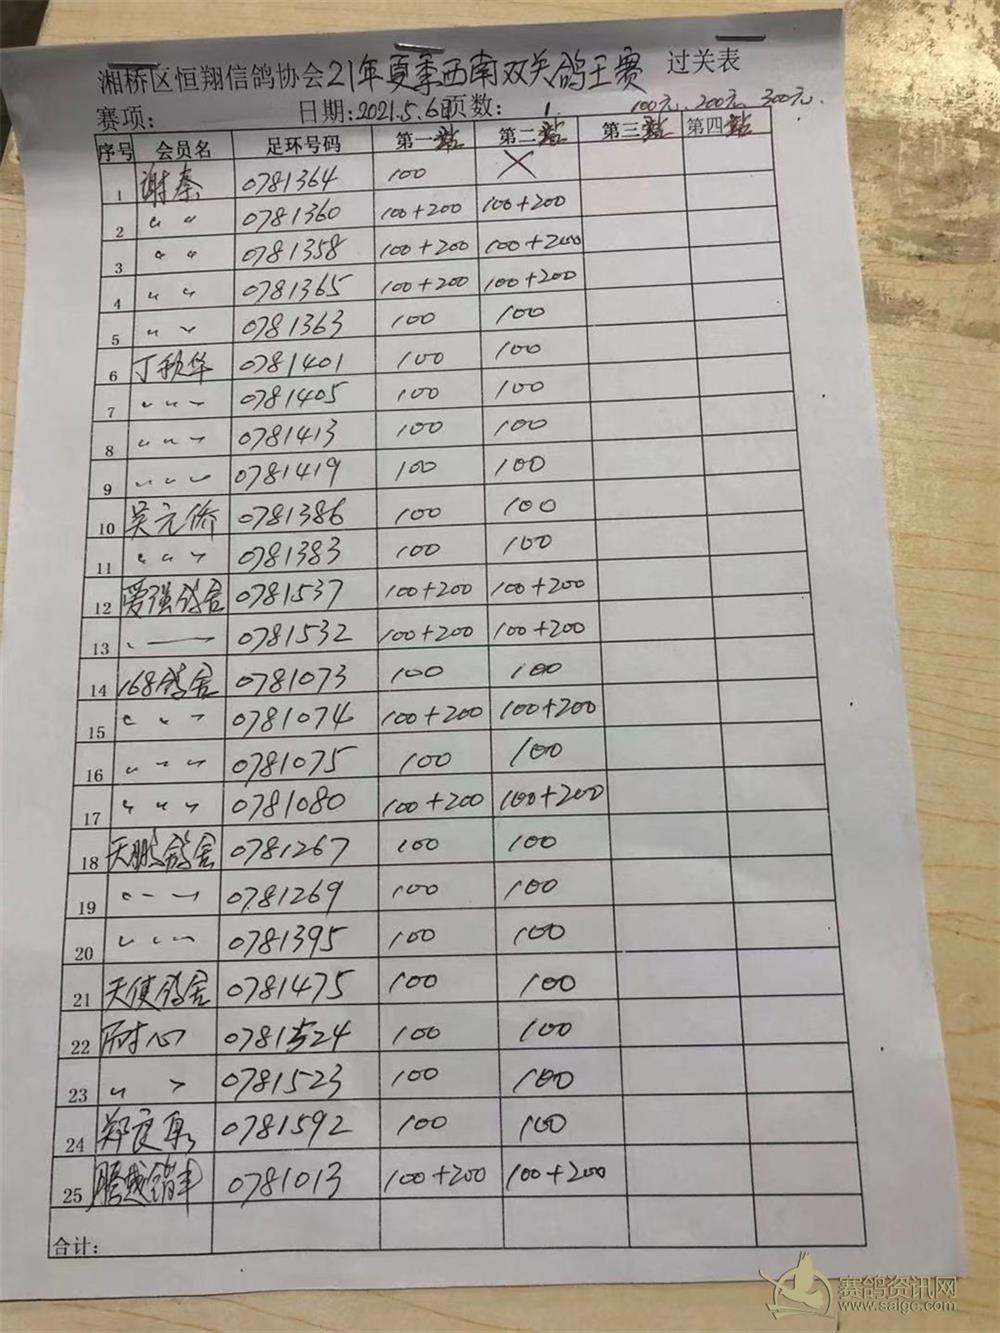 湘桥区恒翔信鸽协会21年夏季西南双关鸽王赛 过关表
赛项: 日期:2021.5.6日 页数: 1. 100元、200元、300元.
序号 会员名 足环号码 第一站 第二站 第三站 第四站
1 谢泰 0781364 100 ×
2 〃 〃 0781360 100+200 100+200
3 〃 〃 0781358 100+200 100+200
4 〃 〃 0781365 100+200 100+200
5 〃 〃 0781363 100 100
6 丁秋华 0781401 100 100
7 〃 〃 〃 0781405 100 100
8 〃 〃 〃 0781413 100 100
9 〃 〃 〃 0781419 100 100
10 吴元侨 0781386 100 100
11 〃 〃 〃 0781383 100 100
12 爱强鸽舍 0781537 100+200 100+200
13 〃 —— 0781532 100+200 100+200
14 168鸽舍 0781073 100 100
15 〃 〃 〃 0781074 100+200 100+200
16 〃 〃 〃 0781075 100 100
17 〃 〃 〃 0781080 100+200 100+200
18 天鹏鸽舍 0781267 100 100
19 〃 — 〃 0781269 100 100
20 〃 〃 〃 0781395 100 100
21 天使鸽舍 0781475 100 100
22 耐心 0781524 100 100
23 〃 〃 0781523 100 100
24 郑良 0781592 100 100
25 腾越 0781013 100+200 100+200
合计:
赛鸽资讯网
www.saige.com